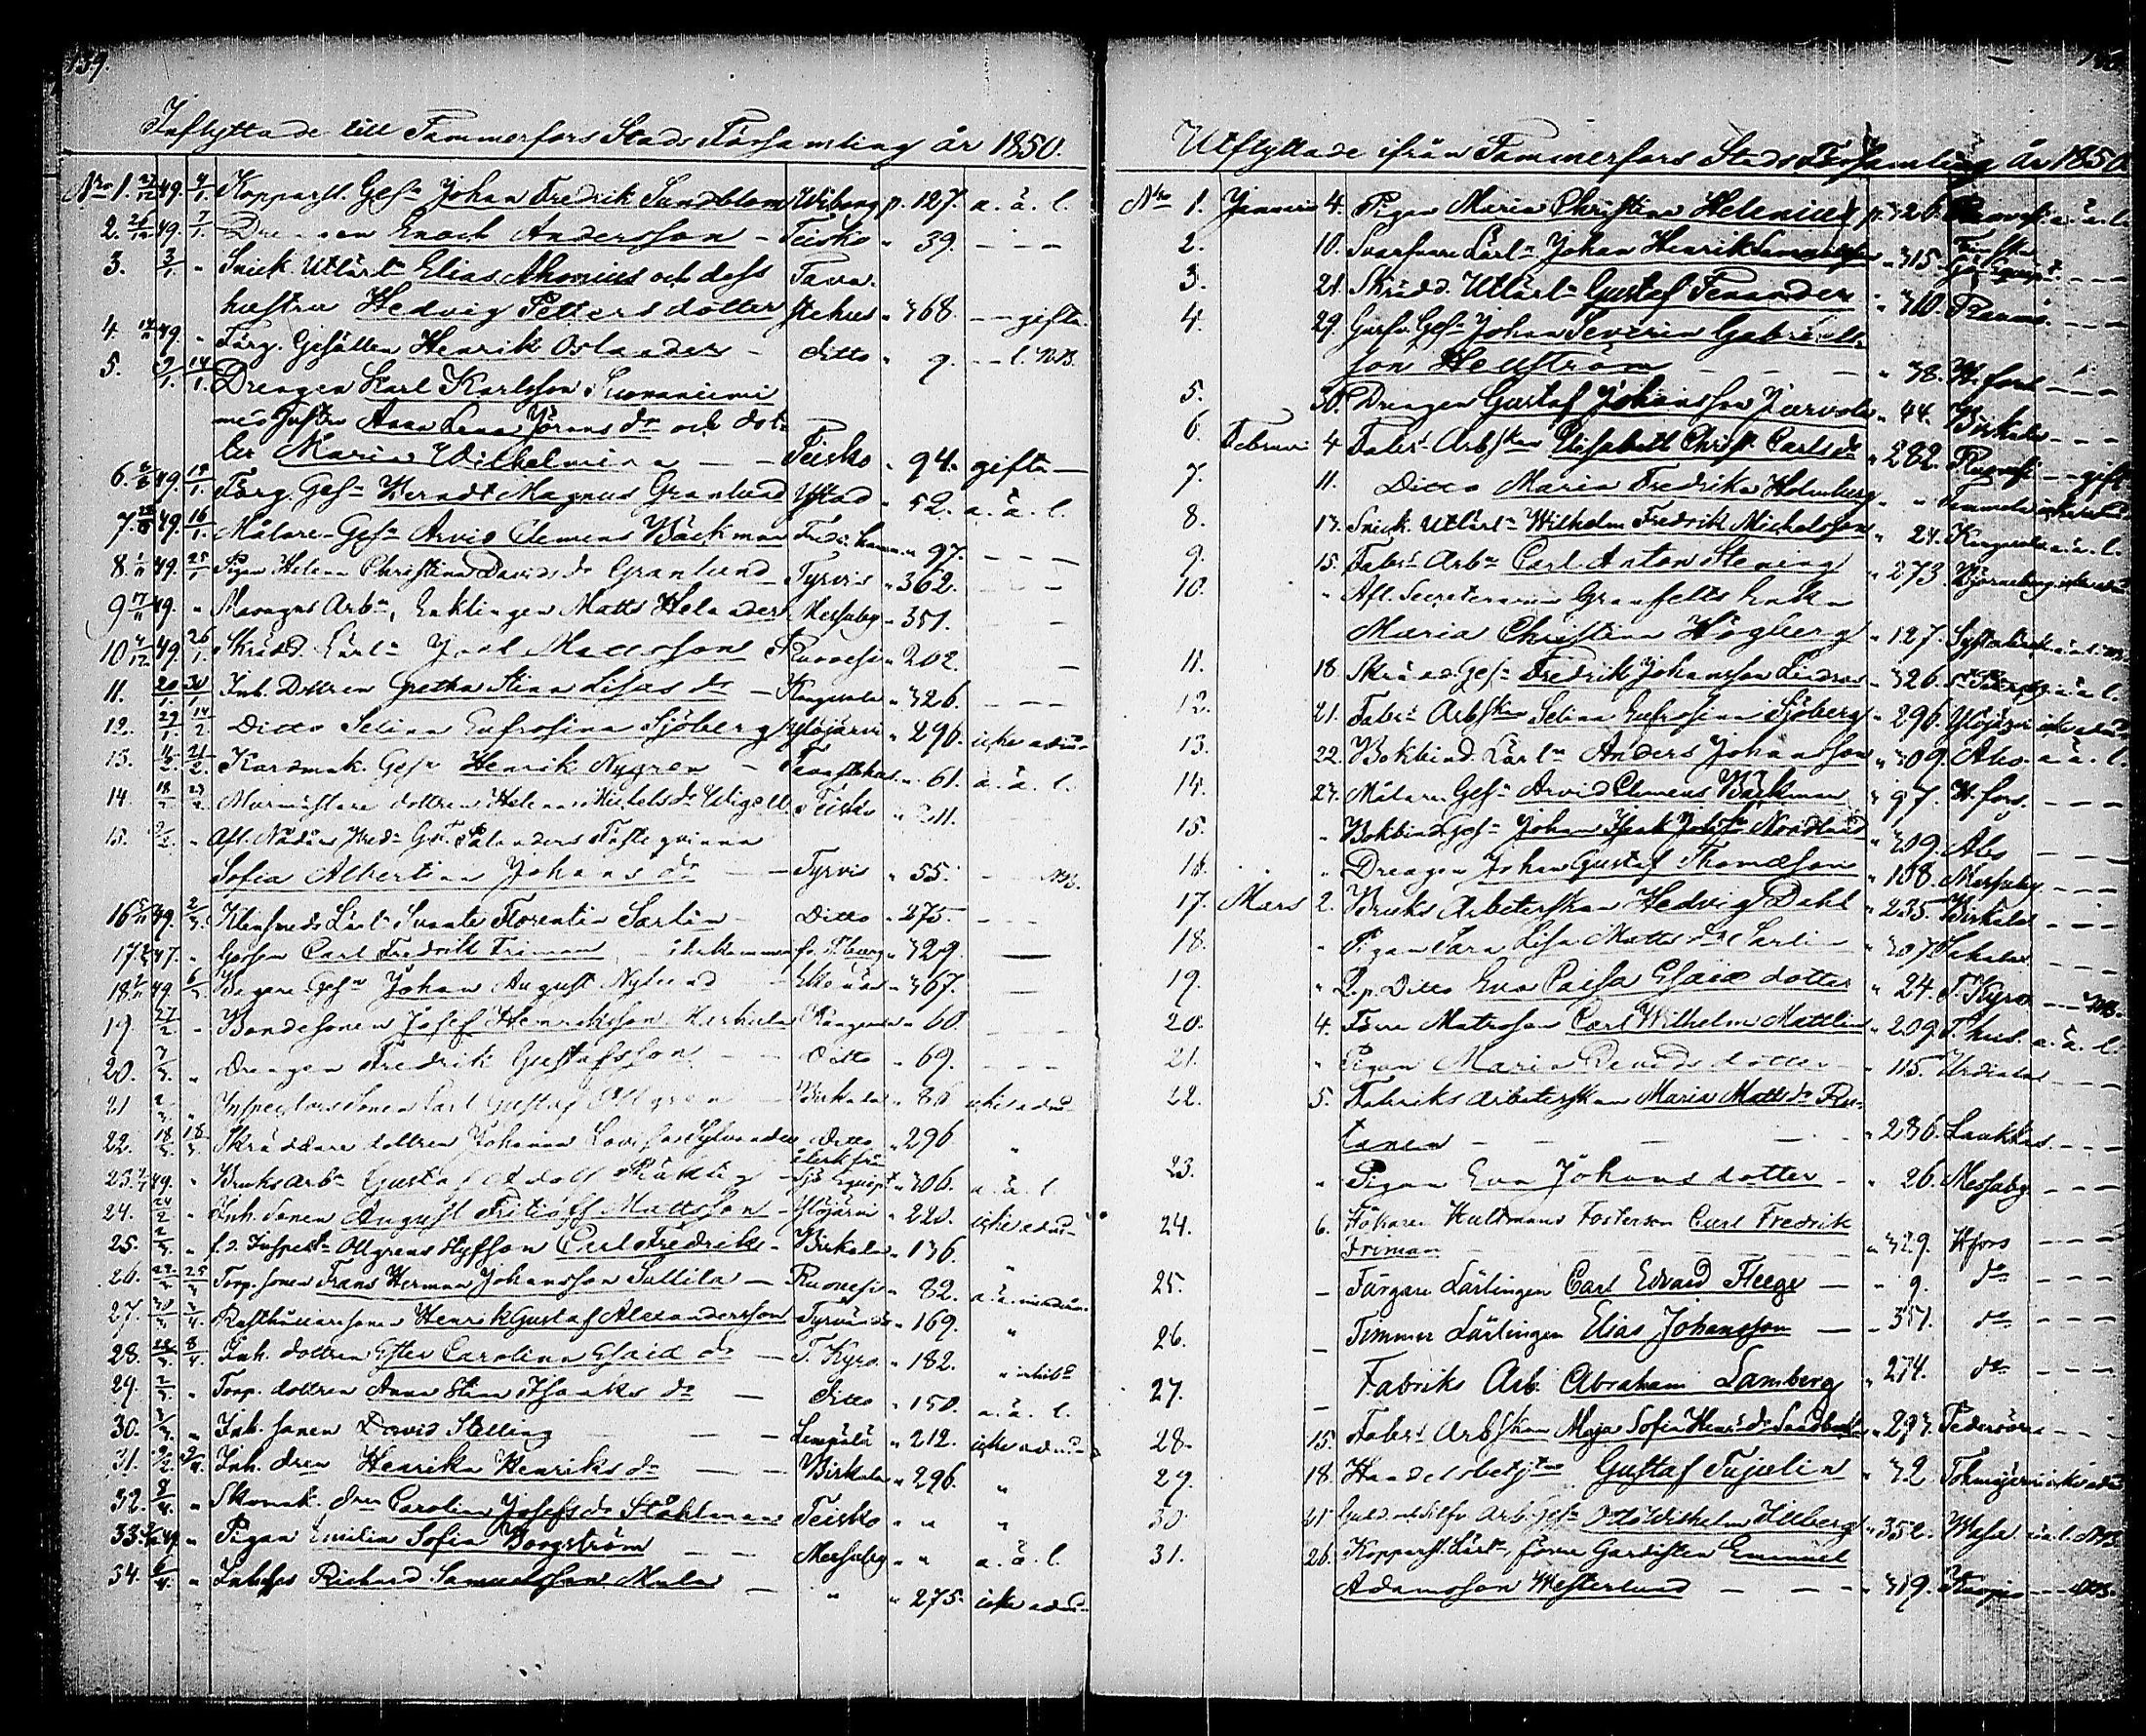 139.
Inflyttade till Tammerfors Stads Församling år 1850.
Nro 1. 49. 4/1. Kopparsl. Gesn Johan Fredrik Sundblom Wiborg p. 127. a. ä. l.
2. 49. 7/1. Enoch Andersson - Teisko " 39. - - -
3. 3/1. " Snick. Utlärln Elias Ahonius och dess Tava-
hustru Hedvig Pettersdotter stehus " 368. - - gifta.
4. 49. " Färg. Gesällen Henrik Oslander - ditto " 9. - - l. NB.
5. 9/1. 14/1. Drengen Karl Karlsson
med hustru Anna Lena Jörans dr och dot-
ter Maria Wilhelmina - - Teisko " 94. gifta -
6. 49. Färg. Gesn Berndt Magnus Granlund Ystad " 52. a. ä. l.
7. 49. 16/1. Målare-Gesn Arvid Clemens Bäckman Fred:hamn " 97. - - -
8. 49. 25/1 Pigan Helena Christina Davids dr Granlund Tyrvis " 362. - - -
9 49. " Arbn, Enklingen Matts Helander Messuby " 351. -
10 49. 26/1. Skrädd. Lärln Joel Mattsson Ruovesi " 202. -
11. 20/1. Inh. Dottren Gretha Stina Lisas dr - Kangasala " 326. - - -
12. 29/1. 14/2 Ditto Selina Eufrosina Sjöberg Ylöjärvi " 296. icke adm-
13. 21/2. Kardmak. Gesn Henrik Nygren - Tavastehus " 61. a. ä. l.
14. Murmästare dottren Helena Michelsdr Teisko " 211.
15. " Afl. Fästeqvinna
Sofia Albertina Johans dr - - Tyrvis " 55. - NB.
16 49. 2/3. Klensmeds Lärln Svante Florentin Sarlin - Ditto " 275. - -
17. 47. " Gossen Carl Fredrik Friman - återkommen fr. " 329. -
18. 49 Bagare Gesn Johan August Nylund - " 367. -
19. 27/2 - Bondesonen Josef Henriksson Kangasala " 60. - - -
20. " Drengen Fredrik Gustafsson - - Ditto " 69. - - -
21 Inspectors Sonen Carl Gustaf Ollgren - Birkala " 86 icke adm-
22. 18/3. 18/3. Skräddare dottren Johanna Lovisa Sylvander Ditto " 296 "
23. 49. " Bruks Arbn Gustaf Adolf återk från " 306. a. ä. l.
24. 24/2 " Inh. Sonen August Fritiof Mattsson - Ylöjärvi " 220. icke adm-
25. 2/3. " f. d. Inspectn Ollgrens styfson Carl Fredrik - Birkala " 136. "
26. 25/3 Torp. sonen Frans Herman Johansson Sullila - Ruovesi " 82.
27. Rusthållaresonen Henrik Gustaf Alexandersson Tyrvändö " 169. "
28. 8/4. Inh. dottren Ester Carolina Esaiæ dr - T. Kyro. " 182.
29. 2/3. " Torp. dottren Anna Stina Isaks dr - Ditto " 150. a. ä. l.
30. " Inh. sonen David Stelling - - Lempälä " 212. icke adm-
31. Inh. dren Henrika Henriks dr - - Birkala " 296. "
32. 8/4. " Skomak. dren Carolina Josefs dr Ståhlman Teisko " " "
33. 49. " Pigan Emilia Sofia Borgström - - Messuby " " a. ä. l.
34. " Richard Samuelsson Mula - " " 275. icke adm-
Utflyttade ifrån Tammerfors Stads Församling år 1850
Nro 1. Januari 4. Pigan Maria Christina Helenius p. 326. Ruovesi a. ä. l.
2. 10. Svarfvare Lärln Johan Henrik " 315.
3. 21. Skrädd. Utlärln Gustaf Fenander " 310. Raumo. - - -
4. 29. Gesn Johan Severin Gabriels-
son Hellström - - - " 38. H.fors - - -
5. 30. Drengen Gustaf Johansson Jærvola " 44. Birkala - - -
6. Februari 4 Fabrs Arbskan Elisabeth Christ. Carlsdr " 282. Ruovesi - - gift
7. 11. Ditto Maria Fredrika Holmberg " "
8. 13. Snick. Utlärln Wilhelm Fredrik Michelsson " 24. Kangasala a. ä. l.
9. 15. Fabrs Arbn Carl Anton Stening " 273. Björneborg icke adm
10. " Afl. Secreteraren Granfelts Enka
Maria Christina Högberg " 127.
11. 18. Skrädd. Gesn Fredrik Johansson Lindroos " 326. St Petersb. a. ä. l.
12. 21. Fabrs Arbskan Selina Eufrosina Sjöberg " 296. Ylöjärvi icke adm
13. 22. Bokbind. Lärln Anders Johansson " 309. Abo. a. ä. l.
14. 27. Målare Gesn Arvid Clemens Bäckman " 97. H.fors. - - -
15. " Bokbind. Gesn Johan Isak Nordlund " 309. Abo - - -
16. " Drengen Johan Gustaf Thomæsson " 188. Messuby - - -
17. Mars 2. Bruks Arbeterskan Hedvig Dahl " 235. Birkala - - -
18. " Pigan Sara Lisa Matts dr Sarlin " 307. Sahalax - - -
19. " Q. p. Ditto Eva Caisa Esaiæ dotter " 24. T. Kyro - - NB.
20. 4. Förre Matrosen Carl Wilhelm Mattlin " 209. T.hus. a. ä. l.
21. " Pigan Maria Davids dotter - " 115. Urdiala - - -
22. 5. Fabriks Arbeterskan Maria Matts dr Ru-
tanen - - - " 286. Laukkas. - - -
23. " Pigan Eva Johans dotter - " 26. Messuby - - -
24. 6. Hökaren Hultmans Fosterson Carl Fredrik
Friman - - - " 329. H.fors - - -
25. - Färgare Lärlingen Carl Edvard Fleege - " 9. do - - -
26. - Timmer Lärlingen Elias Johansson - " 351. do - - -
27. - Fabriks Arb. Abraham Lamberg " 274. do - - -
28. 15. Fabrs Arbskan Maja Sofia Henr. dr " 297. Pedersöre - - -
29. 18. Handelsbetjtn Gustaf Tujulin " 32. Tohmajervi icke adm
30. Guld och Silfv. Arb. Gesn Otto Wilhelm Hellberg " 352. Wasa NB.
31. 26. Kopparsl. Lärln, förre Gardisten Emanuel
Adamsson Westerlund - - - " 319. Kuopio - - NB.